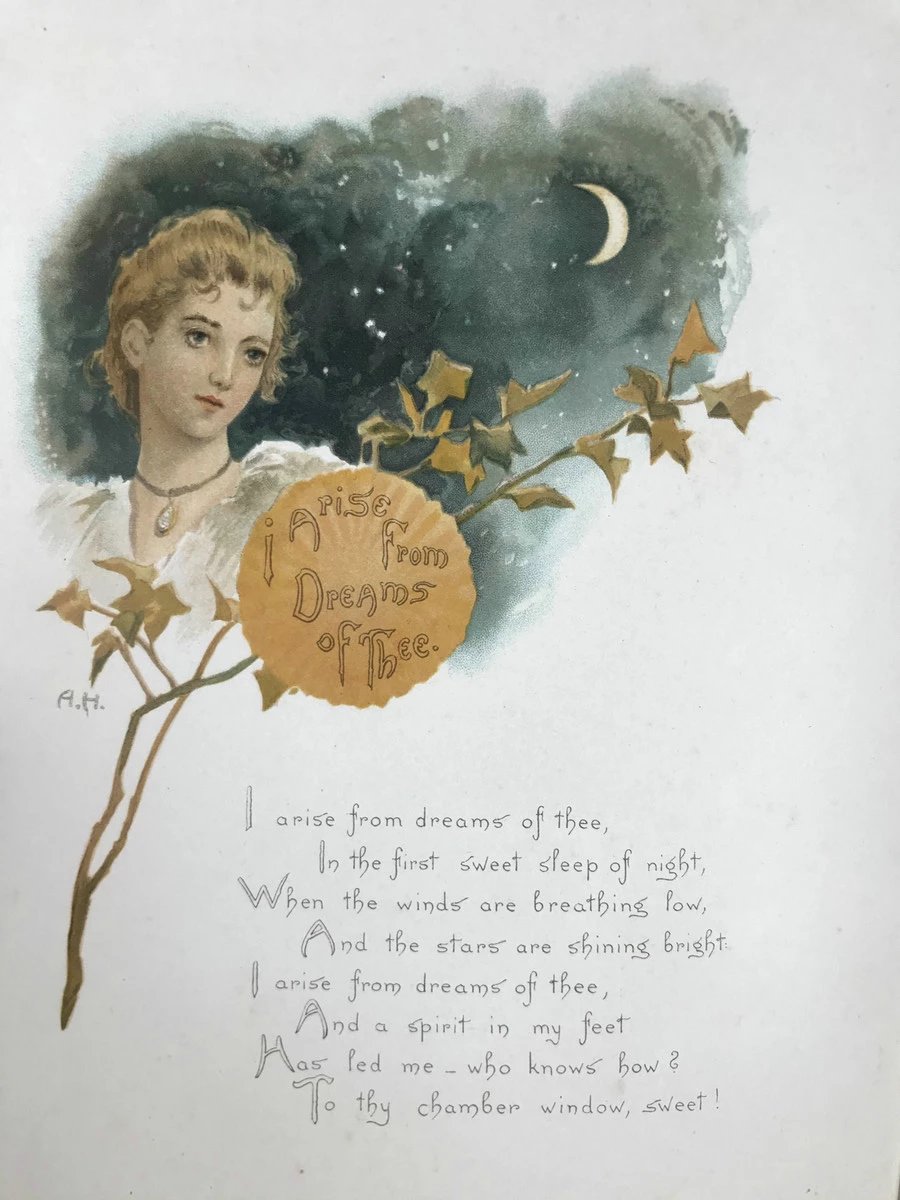 i Arise
From
Dreams
of Thee.
A.H.
I arise from dreams of thee,
In the first sweet sleep of night,
When the winds are breathing low,
And the stars are shining bright:
I arise from dreams of thee,
And a spirit in my feet
Has led me – who knows how?
To thy chamber window, sweet!